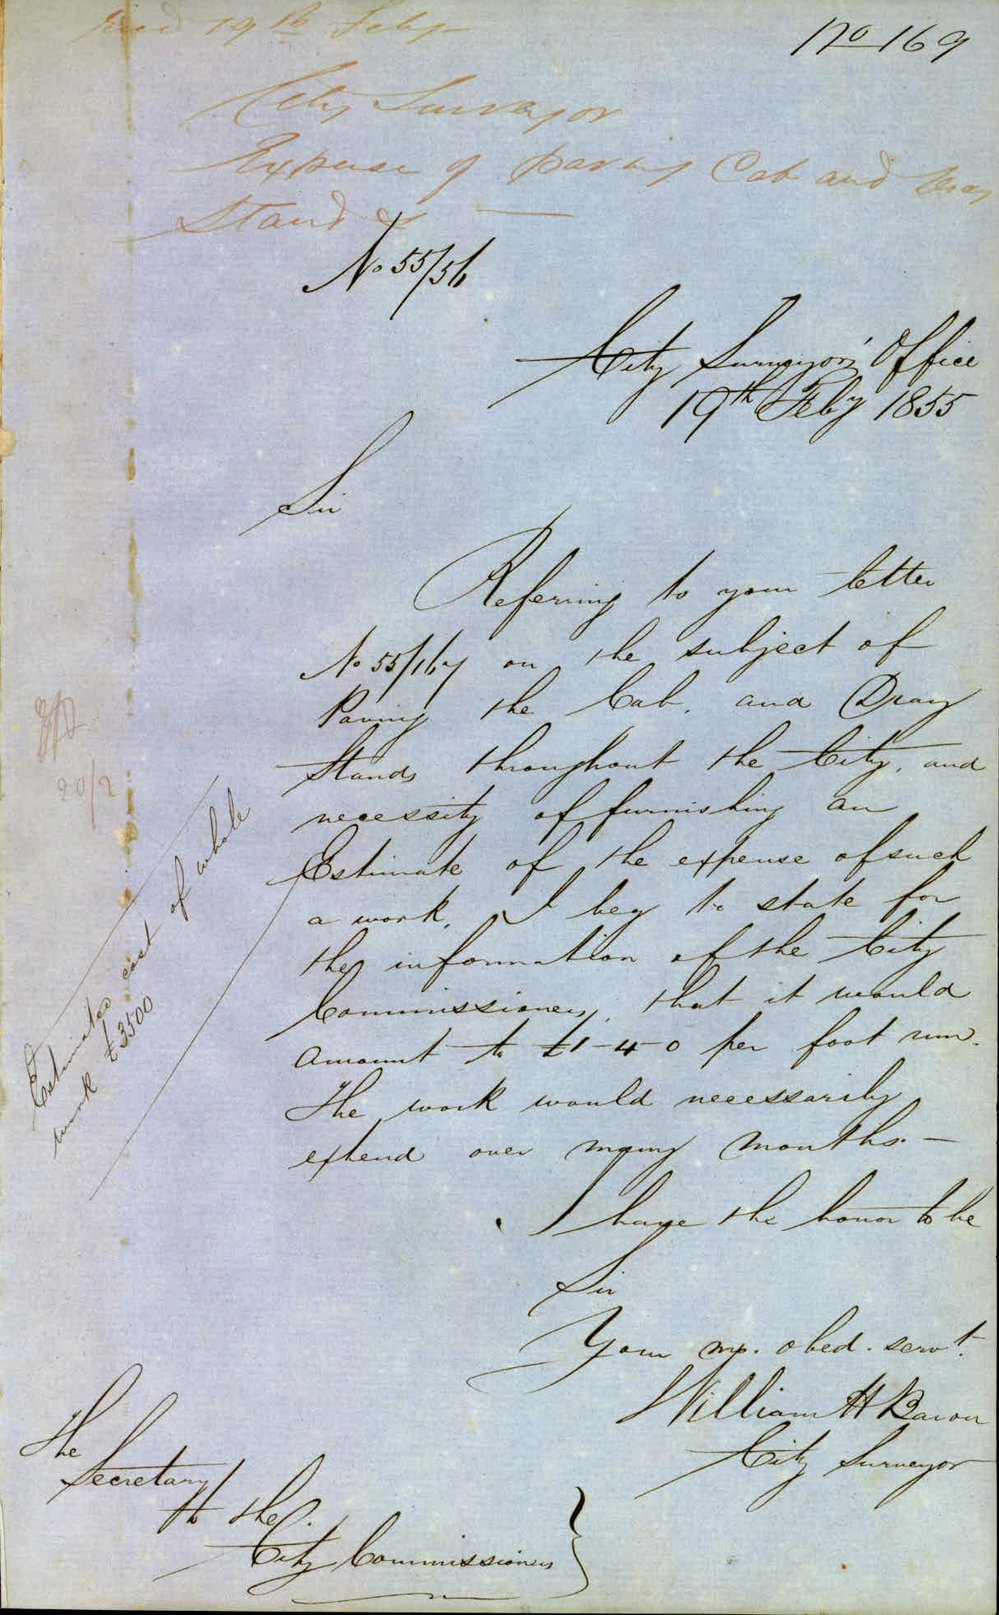 No 169
19th Feby
City Surveyor
Expense of paving Cab and Dray
Stands
No 55/56
City Surveyors' Office
19th Feby 1855
Sir
Referring to your letter
No 55/167 on the subject of
Paving the Cab, and Dray
Stands throughout the City, and
necessity of furnishing an
Estimate of the expense of such
a work, I beg to state for
the information of the City
Commissioners, that it would
amount to £1-4-0 per foot run.
The work would necessarily
extend over many months. —
Estimated cost of whole
work £3500
20/2
I have the honor to be
Sir
Your mo. obed. servt.
William H
City Surveyor
The
Secretary
to the
City Commissioners